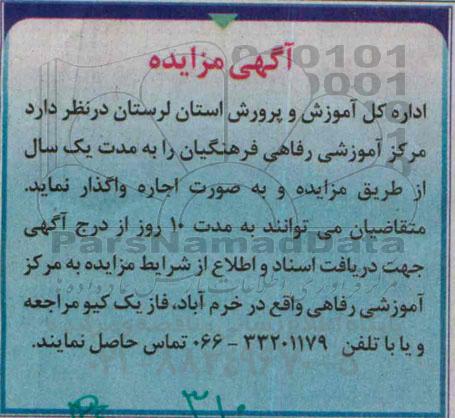 آگهی مزایده
اداره کل آموزش و پرورش استان لرستان درنظر دارد
مرکز آموزشی رفاهی فرهنگیان را به مدت یک سال
از طریق مزایده و به صورت اجاره واگذار نماید.
متقاضیان می توانند به مدت ۱۰ روز از درج آگهی
جهت دریافت اسناد و اطلاع از شرایط مزایده به مرکز
آموزشی رفاهی واقع در خرم آباد، فاز یک کیو مراجعه
و یا با تلفن ۳۳۲۰۱۱۷۹ - ۰۶۶ تماس حاصل نمایند.
ParsNamadData
۳۱۰